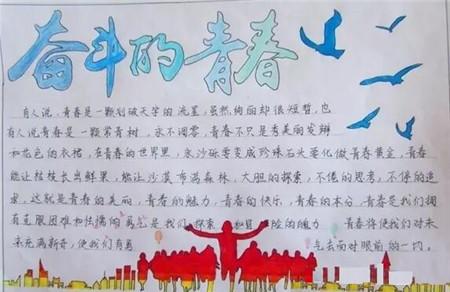 奋斗的青春
有人说，青春是一颗划破天宇的流星，虽然绚丽却很短暂，也
有人说青春是一颗常青树，永不凋零，青春不只是秀美的发辫
和花色的衣裙，在青春的世界里，水沙砾要变成珍珠石头要化做黄金，青春
能让枯枝长出鲜果，能让沙漠布满森林，大胆的探索，不倦的思考，不停的追
求，这就是青春的美丽，青春的魅力，青春的快乐，青春的本分，青春是我们拥
有克服困难和怯懦的勇气是我们探索 险的魄力 青春将使我们对未
来充满新奇，使我们有勇气去面对眼前的一切。